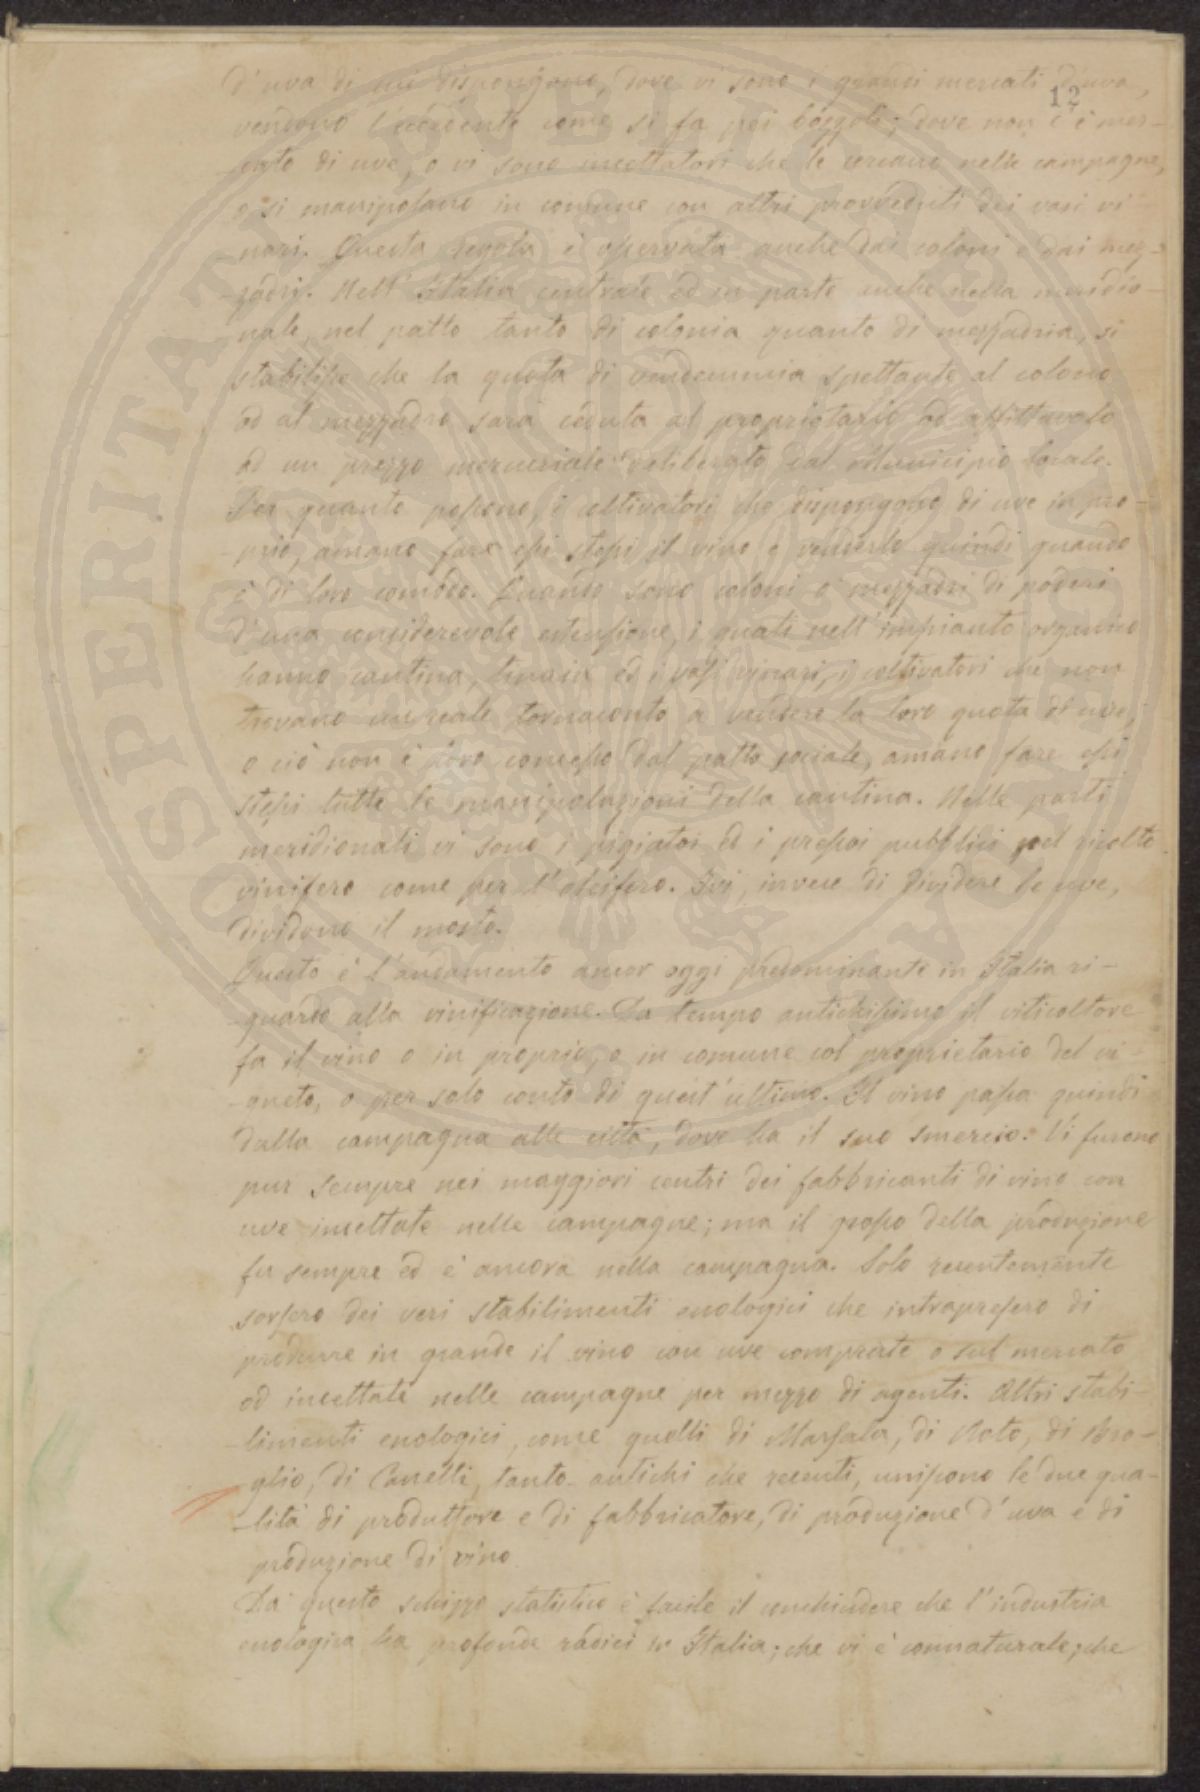 12
d'uva di cui dispongono, dove vi sono i grandi mercati d'uva,
vendono l'eccedente come si fa pei bozzoli; dove non c'è mer-
cato di uve, o vi sono incettatori che le cercano nelle campagne,
o si manipolano in comune con altri provveduti dei vasi vi-
-nari. Questa regola è osservata anche dai coloni e dai mez-
-zadri. Nell'Italia centrale ed in parte anche nella meridio-
-nale, nel patto tanto di colonia quanto di mezzadria, si
stabilisce che la quota di vendemmia spettante al colono
od al mezzadro sarà ceduta al proprietario od affittavolo
ad un prezzo mercuriale deliberato dal Municipio locale.
Per quanto possono, i coltivatori che dispongono di uve in pro-
-prio, amano fare essi stessi il vino e venderlo quindi quando
è di loro comodo. Quando sono coloni o mezzadri di poderi
d'una considerevole estensione, i quali nell'impianto organico
hanno cantina, tinaia ed i vasi vinari, i coltivatori che non
trovano un reale tornaconto a vendere la loro quota di uve,
o ciò non è loro concesso dal patto sociale, amano fare essi
stessi tutte le manipolazioni della cantina. Nelle parti
meridionali vi sono i pigiatoi ed i pressoi pubblici pel ricolto
vinifero come per l'oleifero. Ivi, invece di dividere le uve,
dividono il mosto.
Questo è l'andamento ancor oggi predominante in Italia ri-
-guardo alla vinificazione. Da tempo antichissimo il viticoltore
fa il vino o in proprio, o in comune col proprietario del vi-
-gneto, o per solo conto di quest'ultimo. Il vino passa quindi
dalla campagna alle città, dove ha il suo smercio. Vi furono
pur sempre nei maggiori centri dei fabbricanti di vino con
uve incettate nelle campagne; ma il grosso della produzione
fu sempre ed è ancora nella campagna. Solo recentemente
sorsero dei veri stabilimenti enologici che intrapresero di
produrre in grande il vino con uve comprate o sul mercato
od incettate nelle campagne per mezzo di agenti. Altri stabi-
-limenti enologici, come quelli di Marsala, di Noto, di Bro-
-glio, di Canelli, tanto antichi che recenti, uniscono le due qua-
-lità di produttore e di fabbricatore, di produzione d'uva e di
produzione di vino.
Da questo schizzo statistico è facile il conchiudere che l'industria
enologica ha profonde radici in Italia; che vi è connaturale; che
PROSPERITATI PUBLICAE AUGENDAE